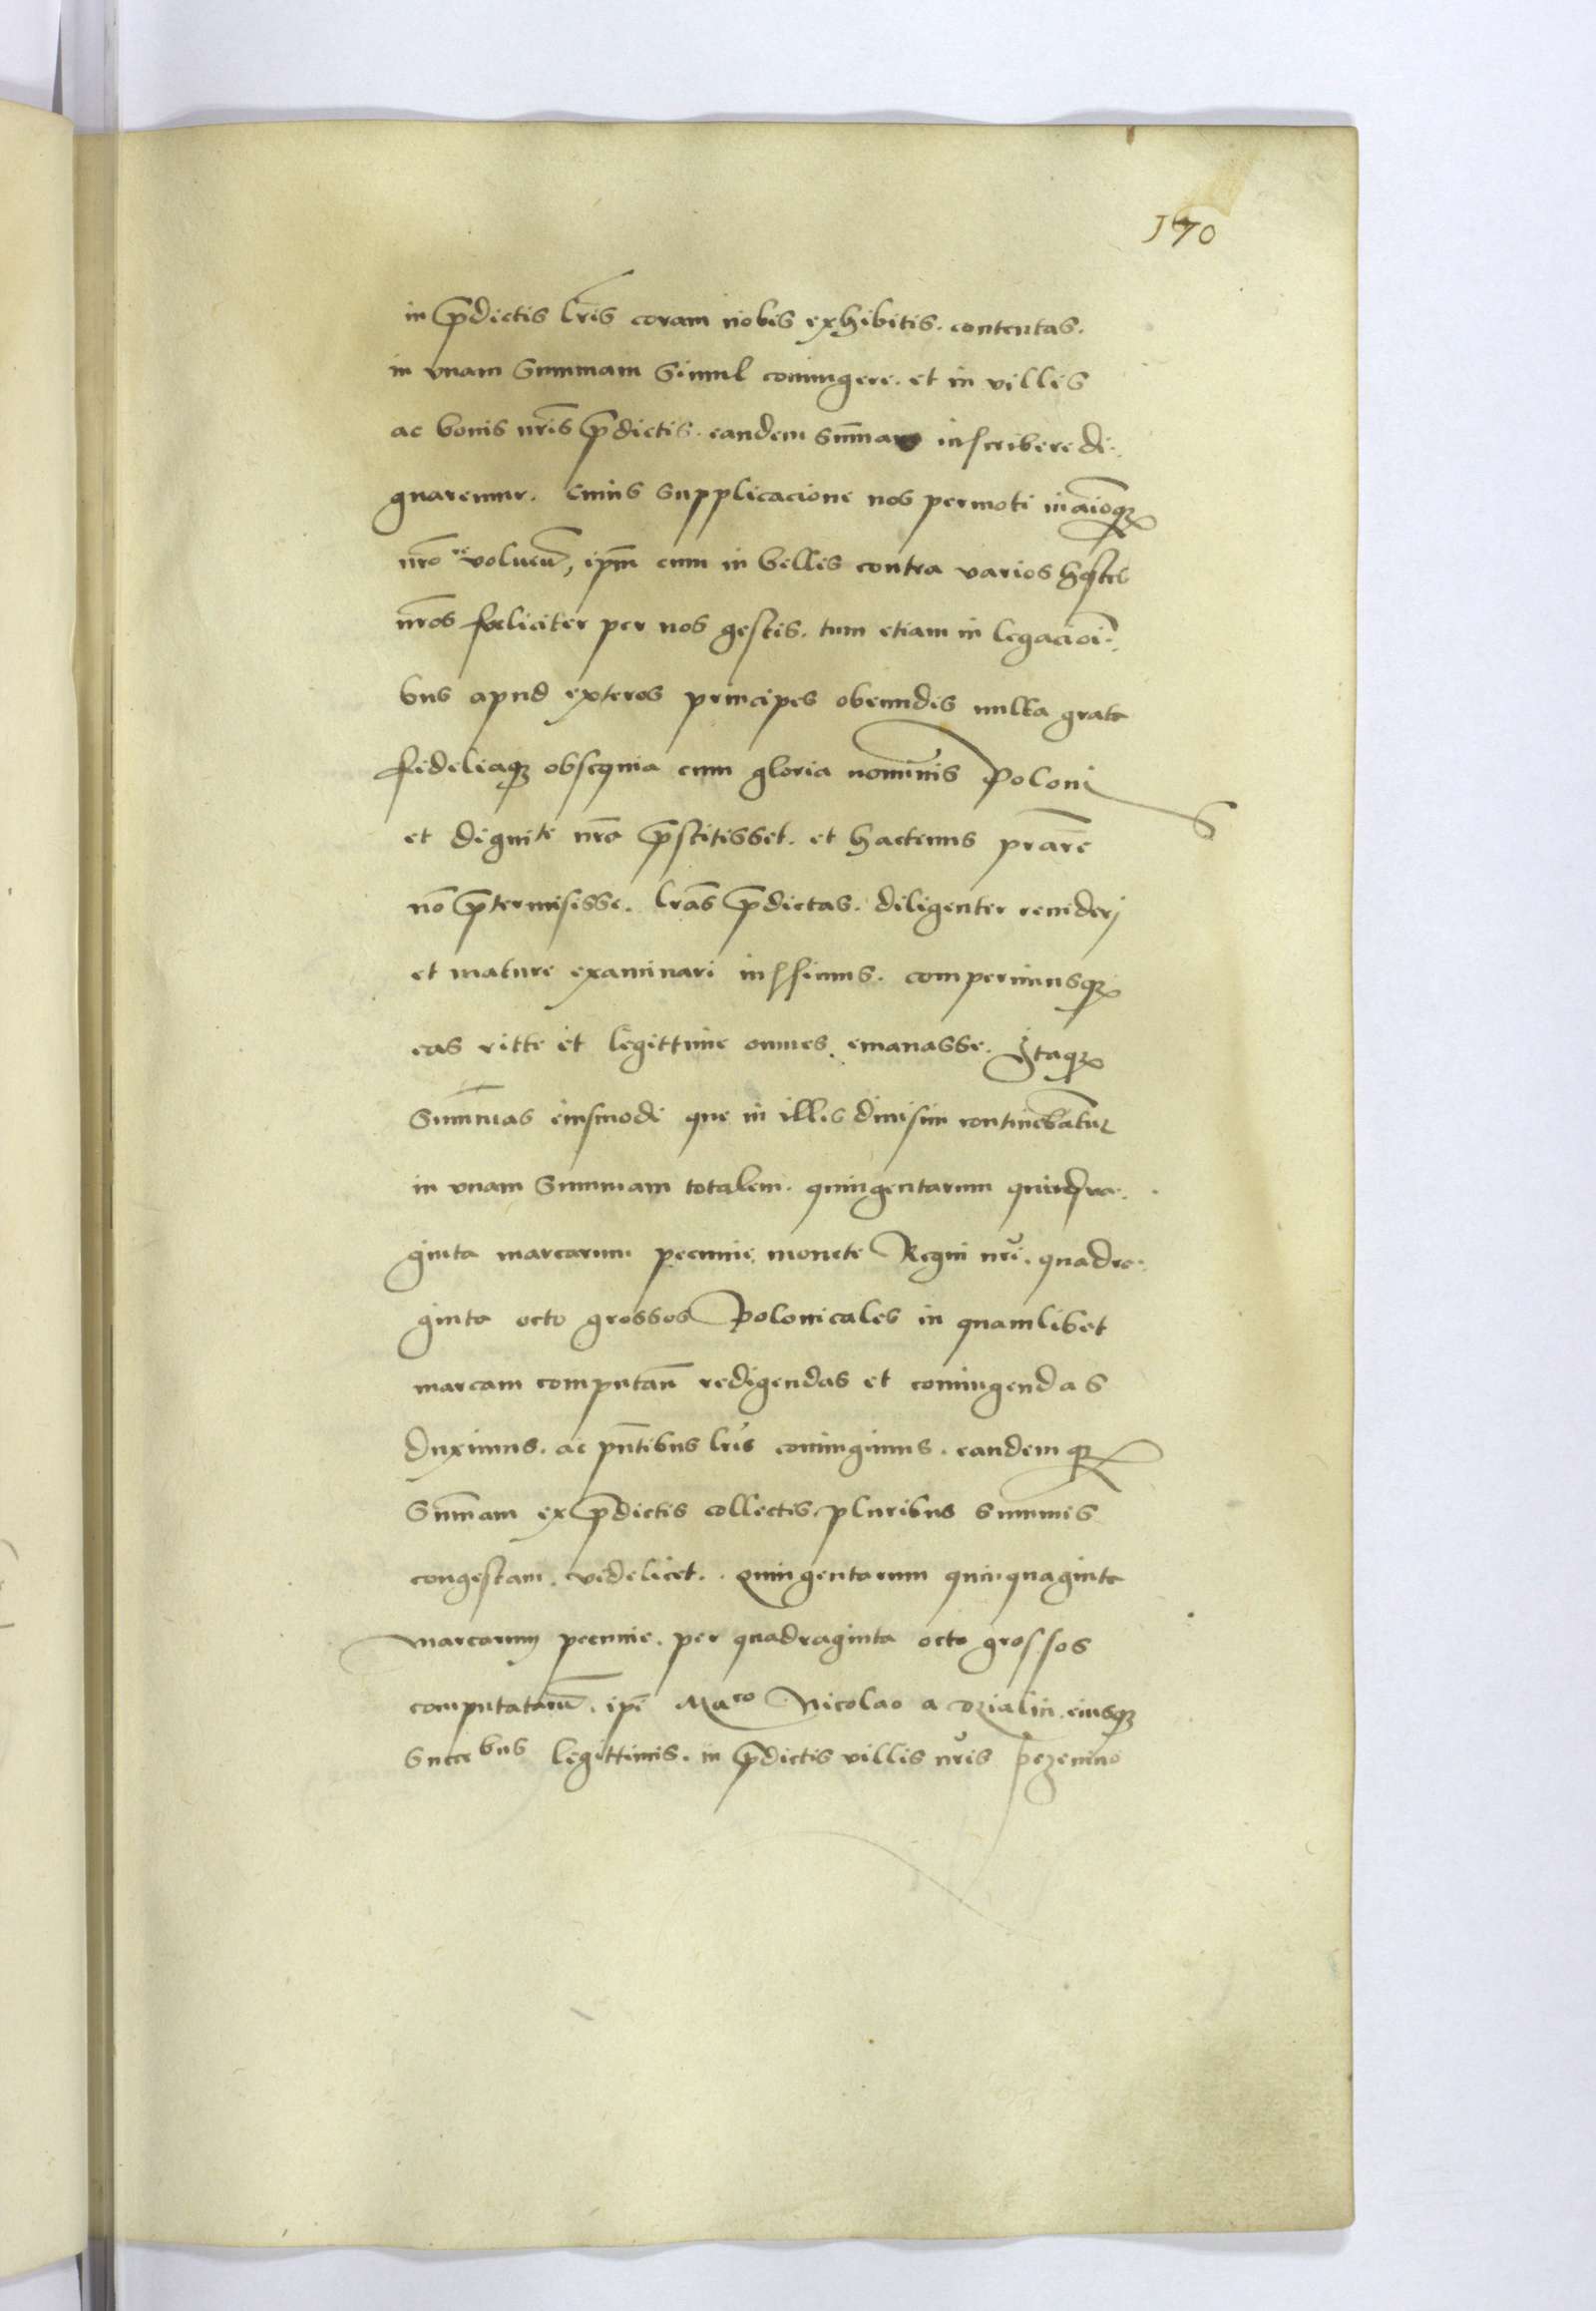 170
in p̄dictis lr̄is coram nobis exhibitis. contentas.
in vnam Summam Simul coniungere. et in villis
ac bonis nr̄is p̄dictis. eandem Sum̄am inscribere di-
gnaremur. Cuius supplicacione nos permoti in aīoq3
nr̄o re voluen̄, ip̄m cum in bellis contra varios hostes
nr̄os fęliciter per nos gestis. tum etiam in legacioī-
bus apud exteros principes obeundis multa grata
fideliaq3 obsequia cum gloria nominis Poloni
et dignite nr̄a p̄stitisset. et hactenus prar̄e
no̅ p̄termisisse. lr̄as p̄dictas. diligenter reuiderj
et mature examinari iussimus. comperimusq3
eas ritte et legittime omnes emanasse. Itaq3
Summas eiusmodi que in illis diuisim continebantur
in vnam Summam totalem. quingentarum quinqua-
ginta marcarum pecunie monete Regni nr̄i. quadra-
ginta octo grossos Polonicales in quamlibet
marcam computan̄ redigendas et coniungendas
duximus. ac pn̄tibus lr̄is coniungimus. eandemq3
Sum̄am ex p̄dictis collectis pluribus summis
congestam. videlicet. Quingentarum quinquaginta
marcarum pecunie. per quadraginta octo grossos
computatarū. ip̄i Mᵃco Nicolao a Dzialin eiusq3
Succebus legittimis. in p̄dictis villis nr̄is